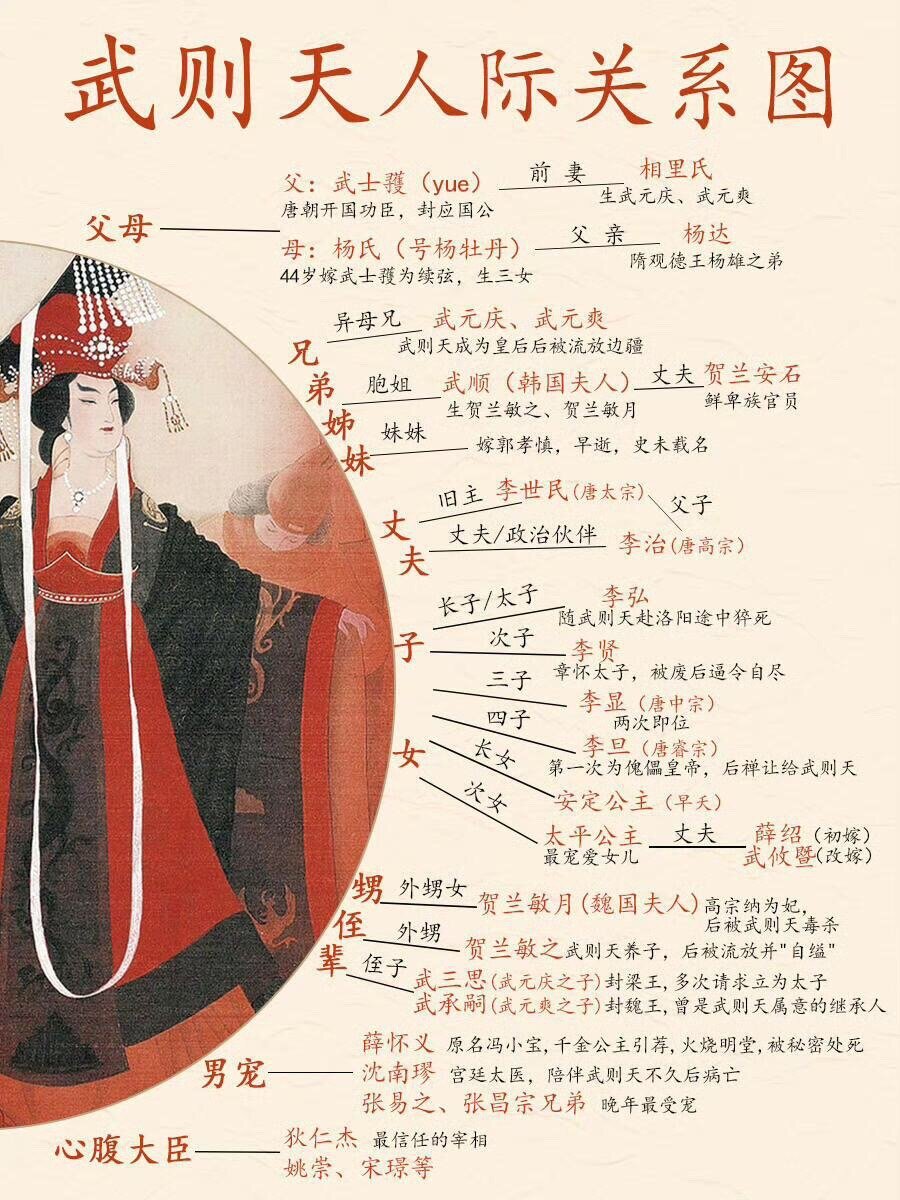 武则天人际关系图
父母
父：武士彟（yue） 前妻 相里氏
唐朝开国功臣，封应国公 生武元庆、武元爽
母：杨氏（号杨牡丹） 父亲 杨达
44岁嫁武士彟为续弦，生三女 隋观德王杨雄之弟
兄弟姊妹
异母兄 武元庆、武元爽
武则天成为皇后后被流放边疆
胞姐 武顺（韩国夫人） 丈夫 贺兰安石
生贺兰敏之、贺兰敏月 鲜卑族官员
妹妹 嫁郭孝慎，早逝，史未载名
丈夫
旧主 李世民(唐太宗) 父子
丈夫/政治伙伴 李治(唐高宗)
子女
长子/太子 李弘
随武则天赴洛阳途中猝死
次子 李贤
章怀太子，被废后逼令自尽
三子 李显（唐中宗）
两次即位
四子 李旦（唐睿宗）
第一次为傀儡皇帝，后禅让给武则天
长女 安定公主（早夭）
次女 太平公主 丈夫 薛绍（初嫁）
最宠爱女儿 武攸暨(改嫁)
甥侄辈
外甥女 贺兰敏月(魏国夫人)高宗纳为妃，
后被武则天毒杀
外甥 贺兰敏之武则天养子，后被流放并"自缢"
侄子 武三思(武元庆之子)封梁王,多次请求立为太子
武承嗣(武元爽之子)封魏王,曾是武则天属意的继承人
男宠
薛怀义 原名冯小宝,千金公主引荐,火烧明堂,被秘密处死
沈南璆 宫廷太医，陪伴武则天不久后病亡
张易之、张昌宗兄弟 晚年最受宠
心腹大臣
狄仁杰 最信任的宰相
姚崇、宋璟等